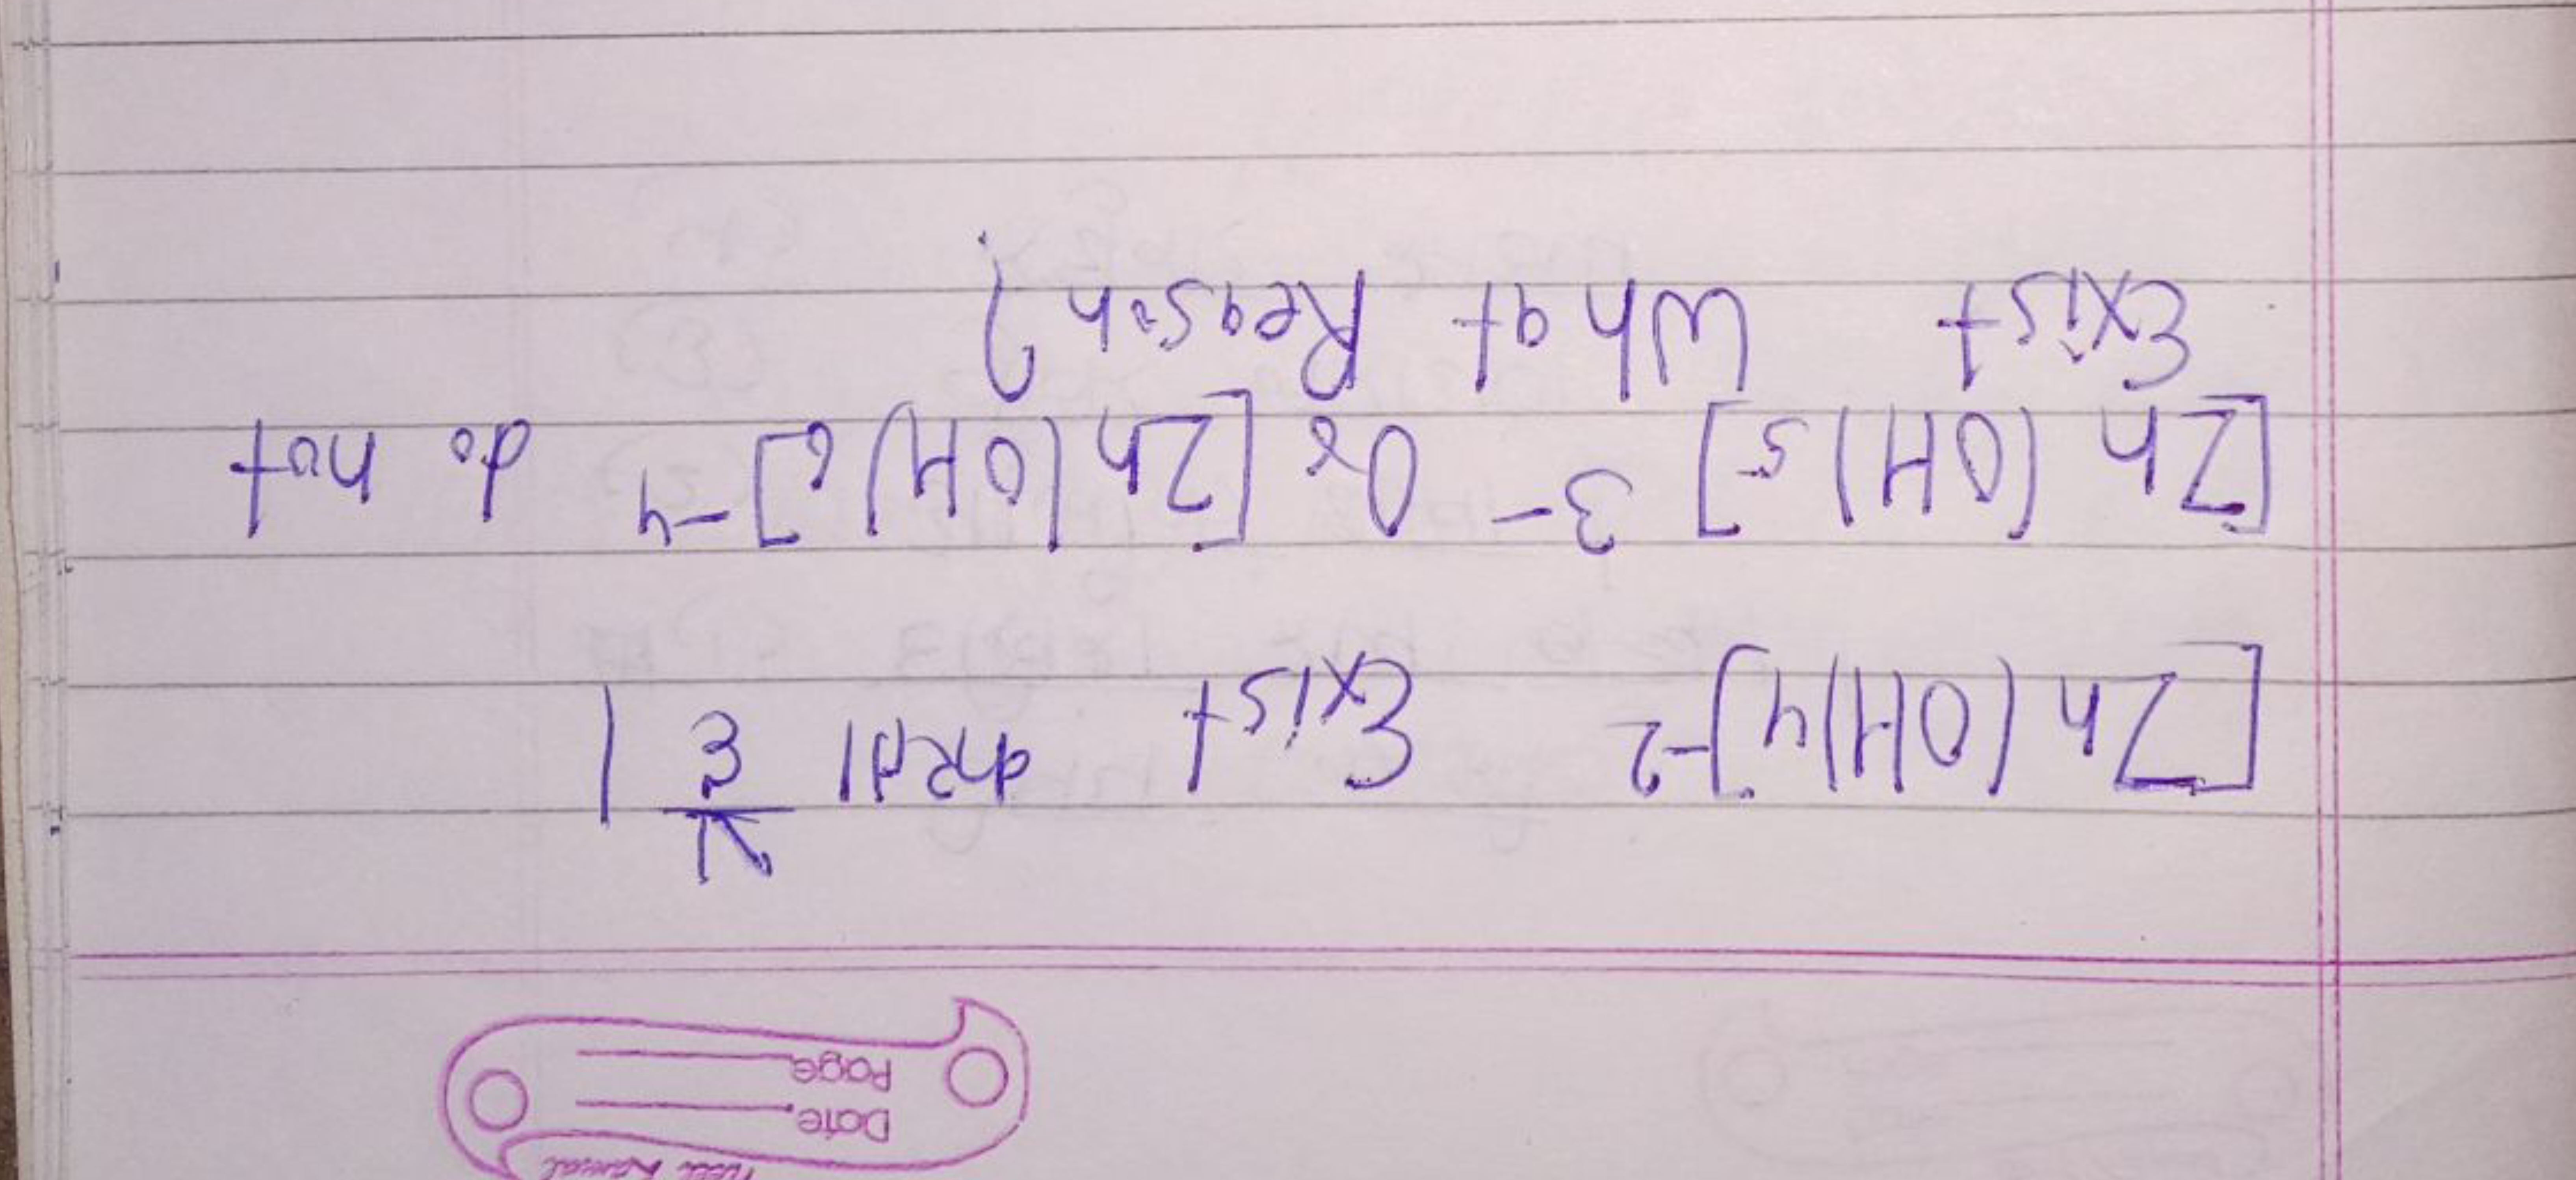 Date
Page
[Zn(OH)4]-2 Exist करता है।
[Zn(OH)5]3- Or [Zn(OH)6]-4 do not
Exist What Reason?